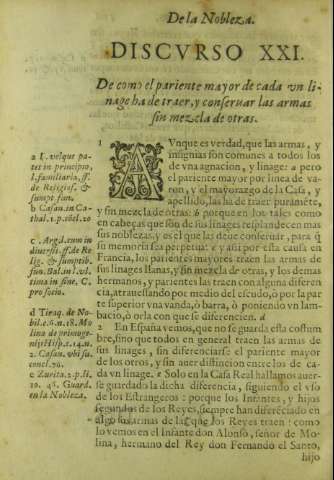 De la Nobleza.
DISCVRSO XXI.
De como el pariente mayor de cada vn li-
nage ha de traer, y conseruar las armas
sin mezcla de otras.
1 AVnque es verdad, que las armas, y
insignias son comunes a todos los
de vna agnacion, y linage: a pero
el pariente mayor por linea de va-
ron, y el mayorazgo de la Casa, y
apellido, las ha de traer puramẽte,
y sin mezcla de otras: b porque en los tales como
en cabeças que son de sus linages resplandecen mas
sus noblezas, y es el que las deue conseruar, para q̃
su memoria sea perpetua: c y assi por esta causa en
Francia, los parientes mayores traen las armas de
sus linages llanas, y sin mezcla de otras, y los demas
hermanos, y parientes las traen con alguna diferen-
cia, atrauessando por medio del escudo, ò por la par
te superior vna vanda, ò barra, ò poniendo vn lam-
bacio, ò orla con que se diferencien. d
2 En España vemos, que no se guarda esta costum
bre, sino que todos en general traen las armas de
sus linages, sin diferenciarse el pariente mayor
de los otros, y sin auer distincion entre los de ca-
da vn linage. e Solo en la Casa Real hallamos auer-
se guardado la dicha diferencia, siguiendo el vso
de los Estrangeros: porque los Infantes, y hijos
segundos de los Reyes, siempre han diferẽciado en
algo sus armas de las que los Reyes traen: como
lo vemos en el Infante don Alonso, señor de Mo-
lina, hermano del Rey don Fernando el Santo,
hijo
a l. velque pa-
tes in principio,
l. familiaria, ff.
de Religios. &
sumpt. fun.
b Casan. in Ca-
thal. 1. p. cõcl. 20
c Argd. cum in
diuersis. ff. de Re
lig. & sumptib.
fun. Bal. in l. vl.
tima in fine. C.
pro socio.
d Tiraq. de No-
bil. c. 6. n. 18. Mo
lina de primoge-
nijs
2. Casan. vbi su.
concl. 70.
e Zurita. 2. p. li.
10. 46. Guard.
en la Nobleza.